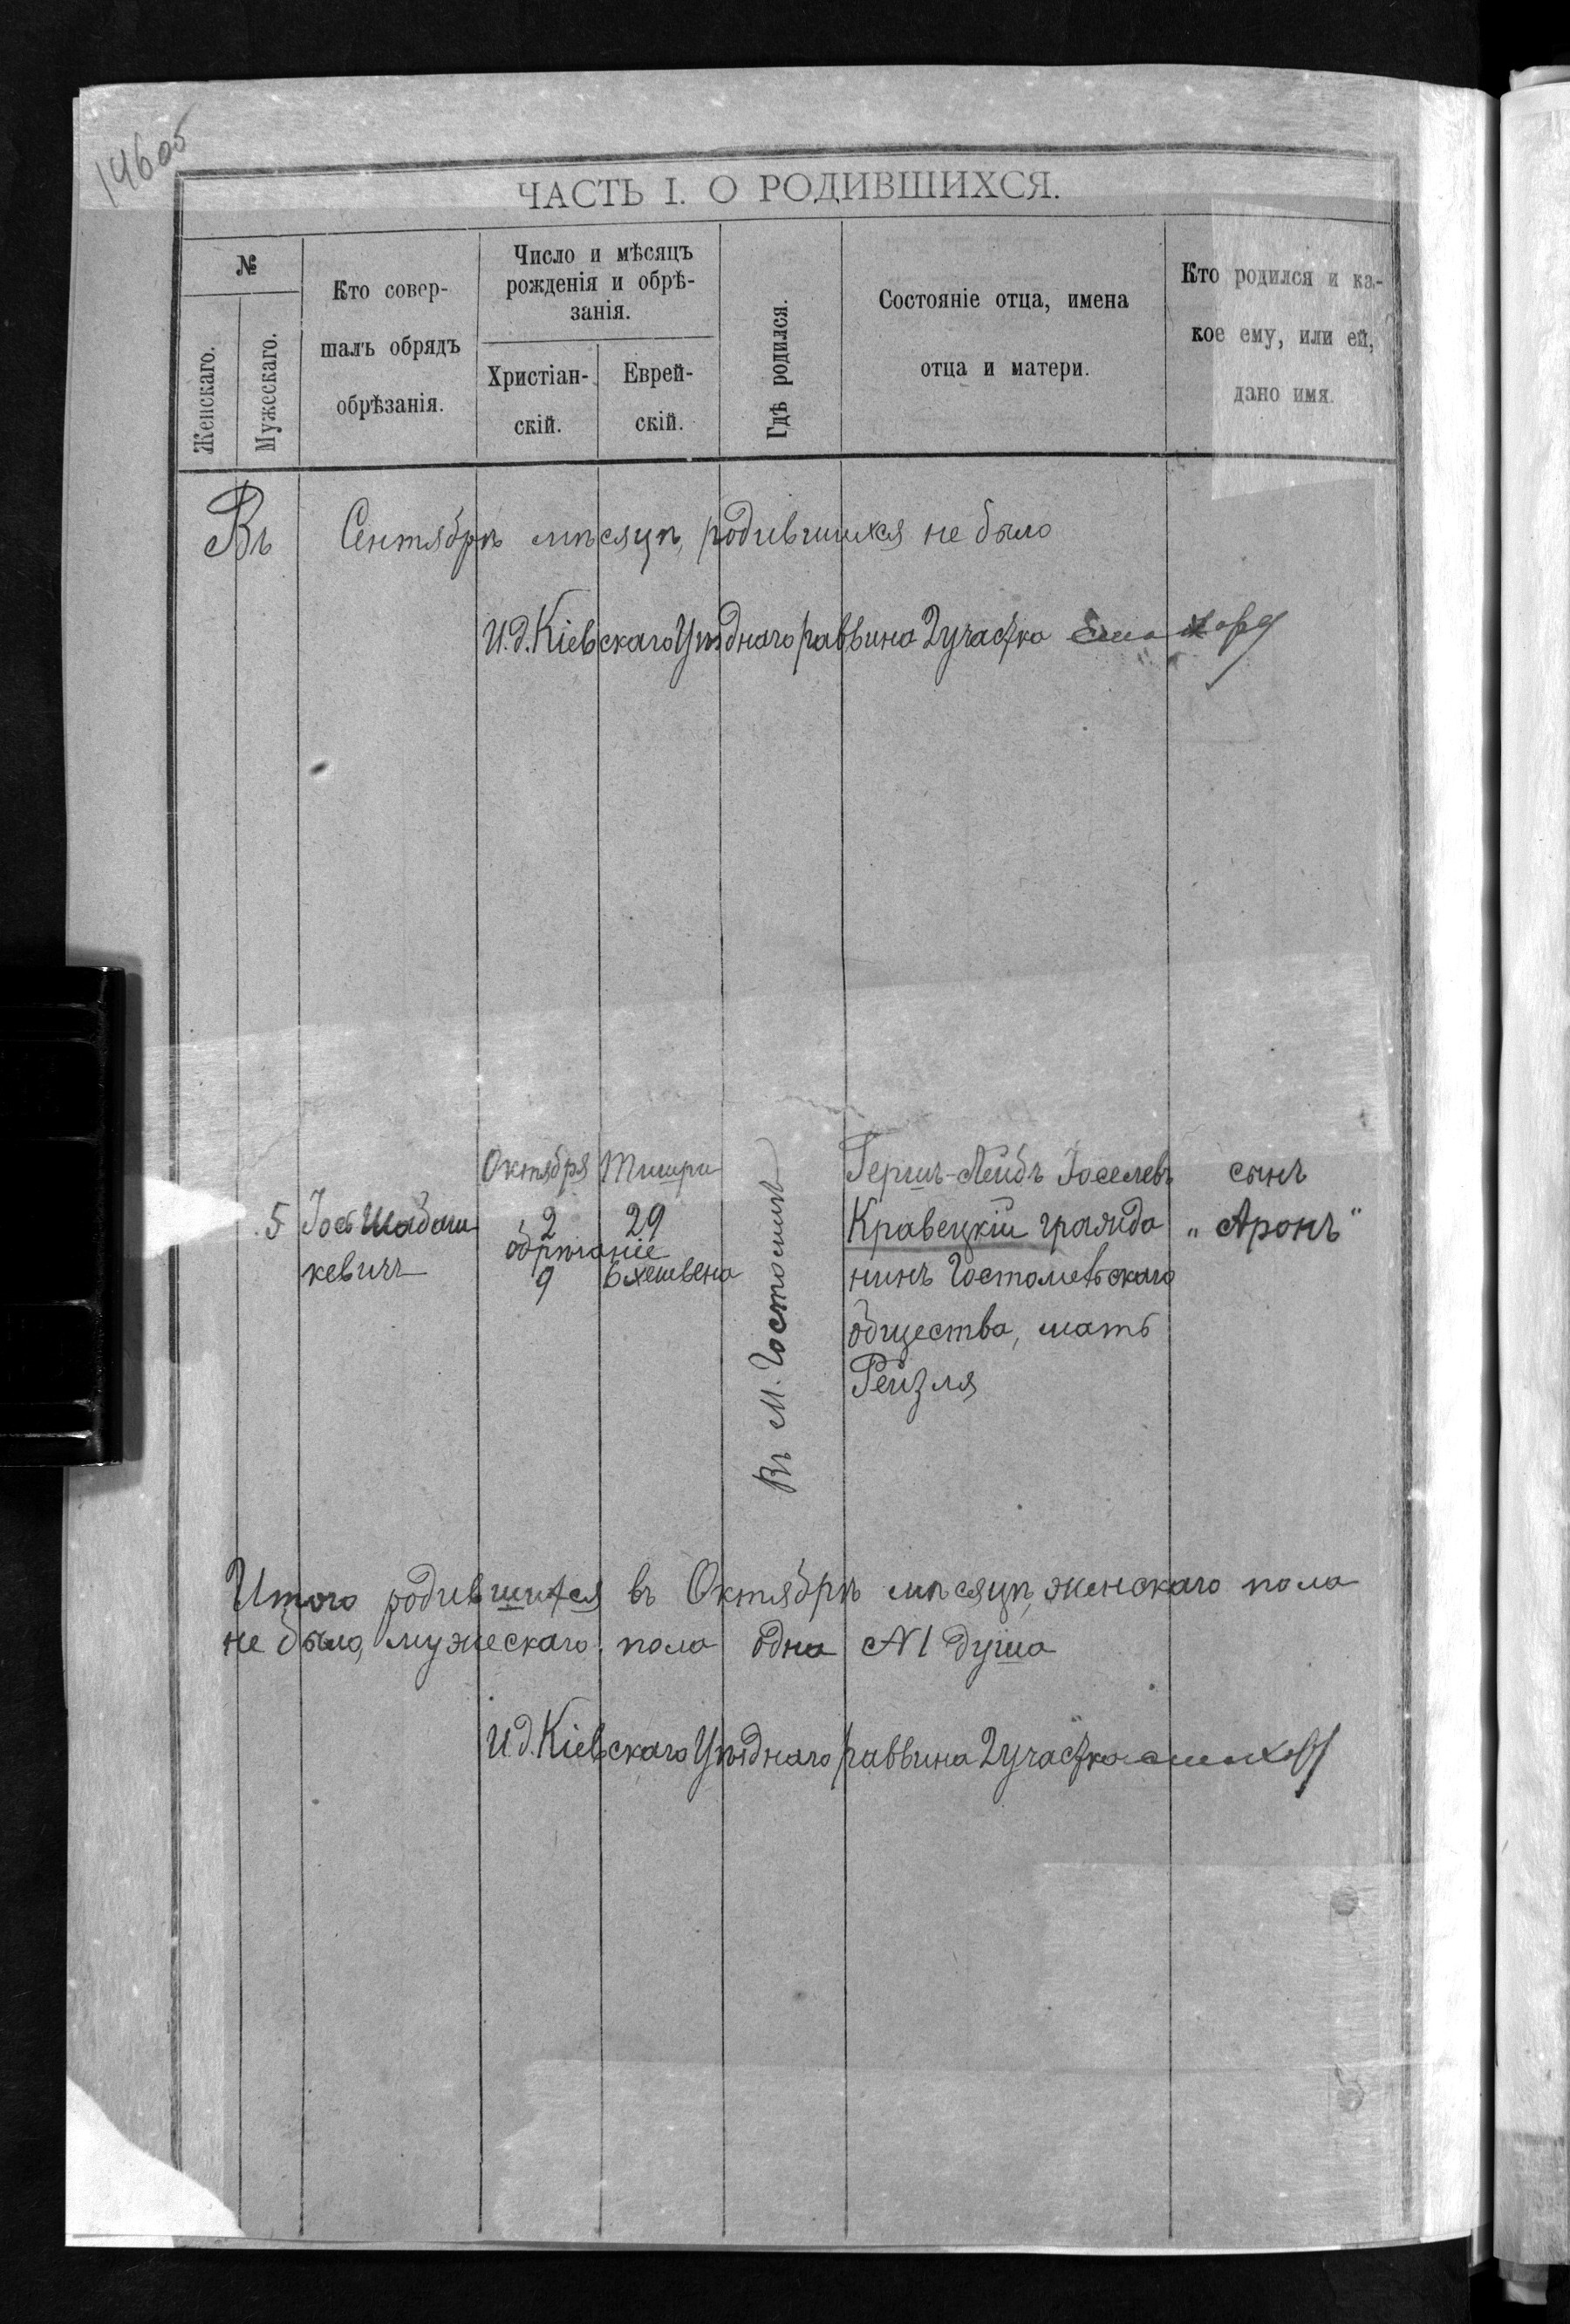 146об
ЧАСТЬ I. О РОДИВШИХСЯ.
№
Женскаго.
Мужескаго.
Кто совер-
шалъ обрядъ
обрѣзанія.
Число и мѣсяцъ
рожденія и обрѣ-
занія.
Христіан-
скій.
Еврей-
скій.
Гдѣ родился.
Состояніе отца, имена
отца и матери.
Кто родился и ка-
кое ему, или ей,
дано имя.
Въ Сентябрѣ мѣсяцѣ, родившихся не было
И.д. Кіевскаго Уѣзднаго раввина 2 участка
5
Іос. Шабаш
кевичъ
Октября
2
обрѣзаніе
9
Тишри
29
6 хешвена
Въ М. Гостомлѣ
Гершъ-Лейбъ Іоселевъ
Кравецкій гражда
нинъ Гостомельскаго
общества, мать
Рейзля
сынъ
„Аронъ"
Итого родившихся въ Октябрѣ мѣсяцѣ, женскаго пола
не было, мужескаго пола одна № 1 душа
И.д. Кіевскаго Уѣзднаго раввина 2 участка